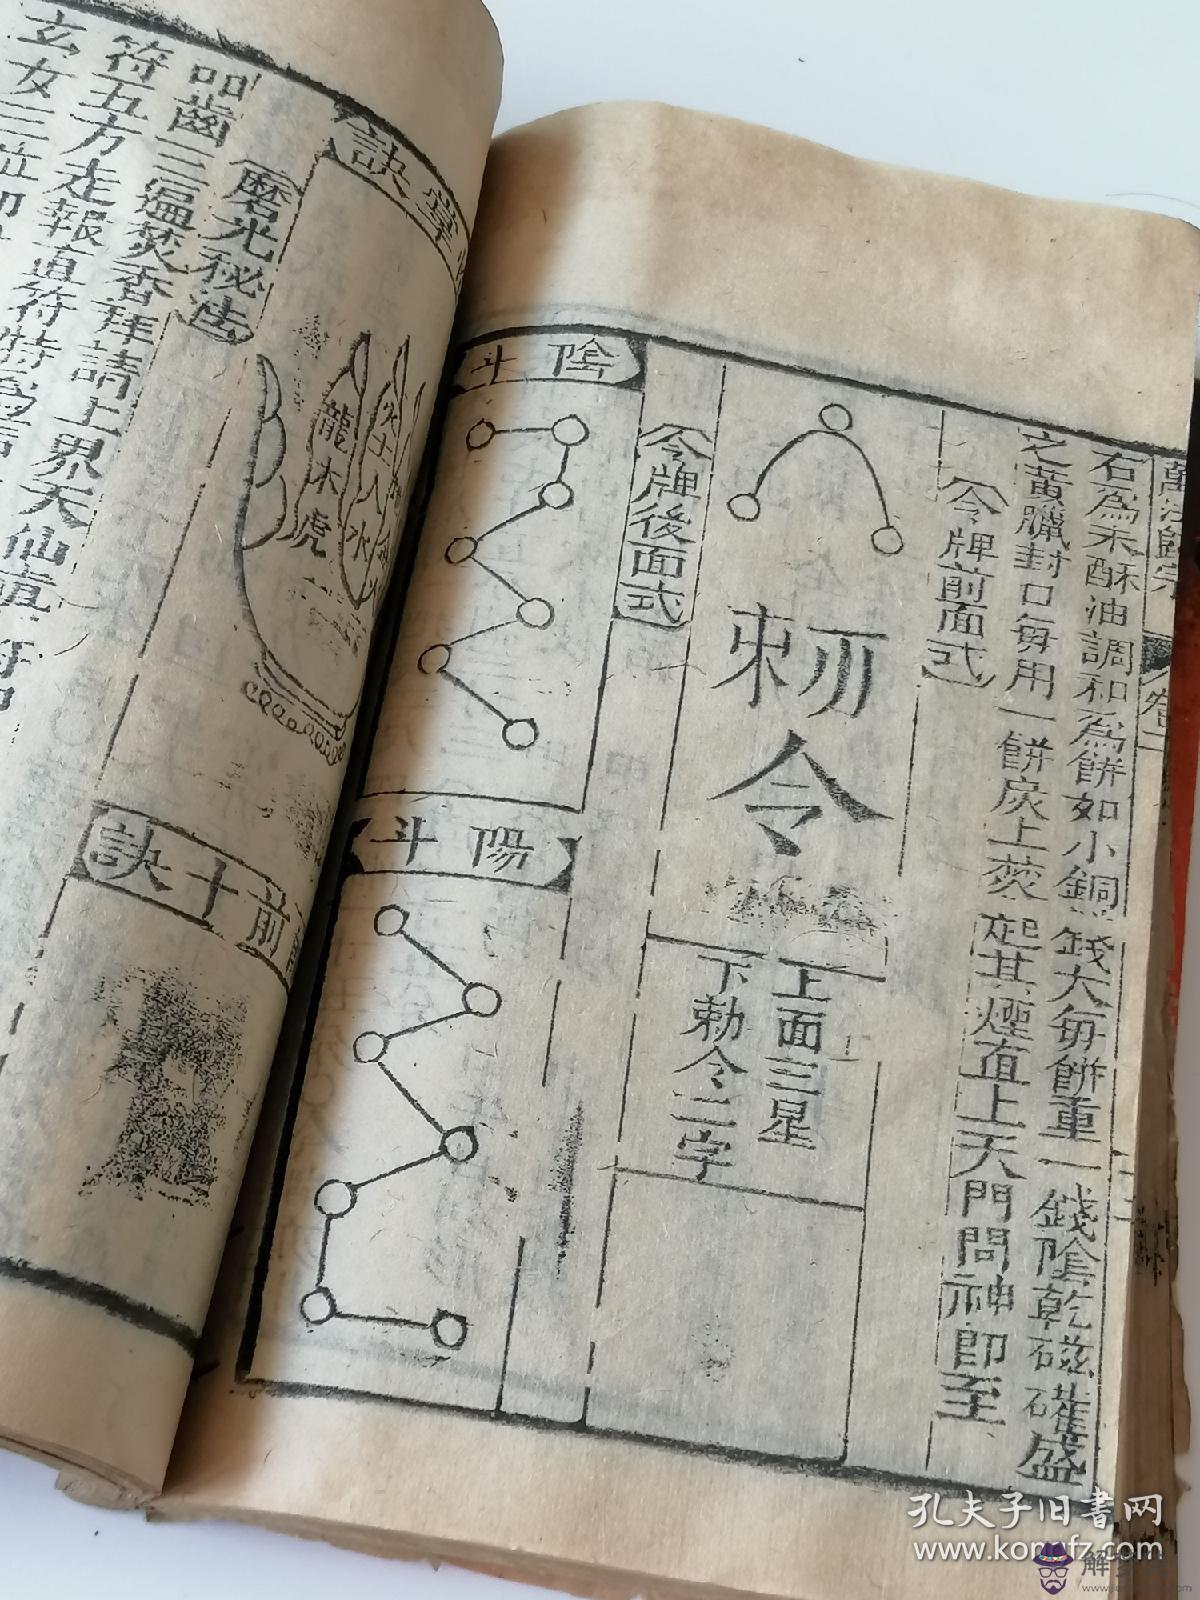 萬法歸宗 卷二
右為末酥油調和為餅如小銅錢大每餅重一錢陰乾磁礶盛
之黃臘封口每用一餅炭上焚起其煙直上天門問神即至
令牌前面式
勅令
上面三星
下勅令二字
令牌後面式
陰斗
陽斗
堂訣
龍木虎
火土人水
前十訣
磨光秘法
叩齒三通焚香拜請上界天仙直符
符五方走報直符特
玄女三位
孔夫子旧書网
www.kongfz.com